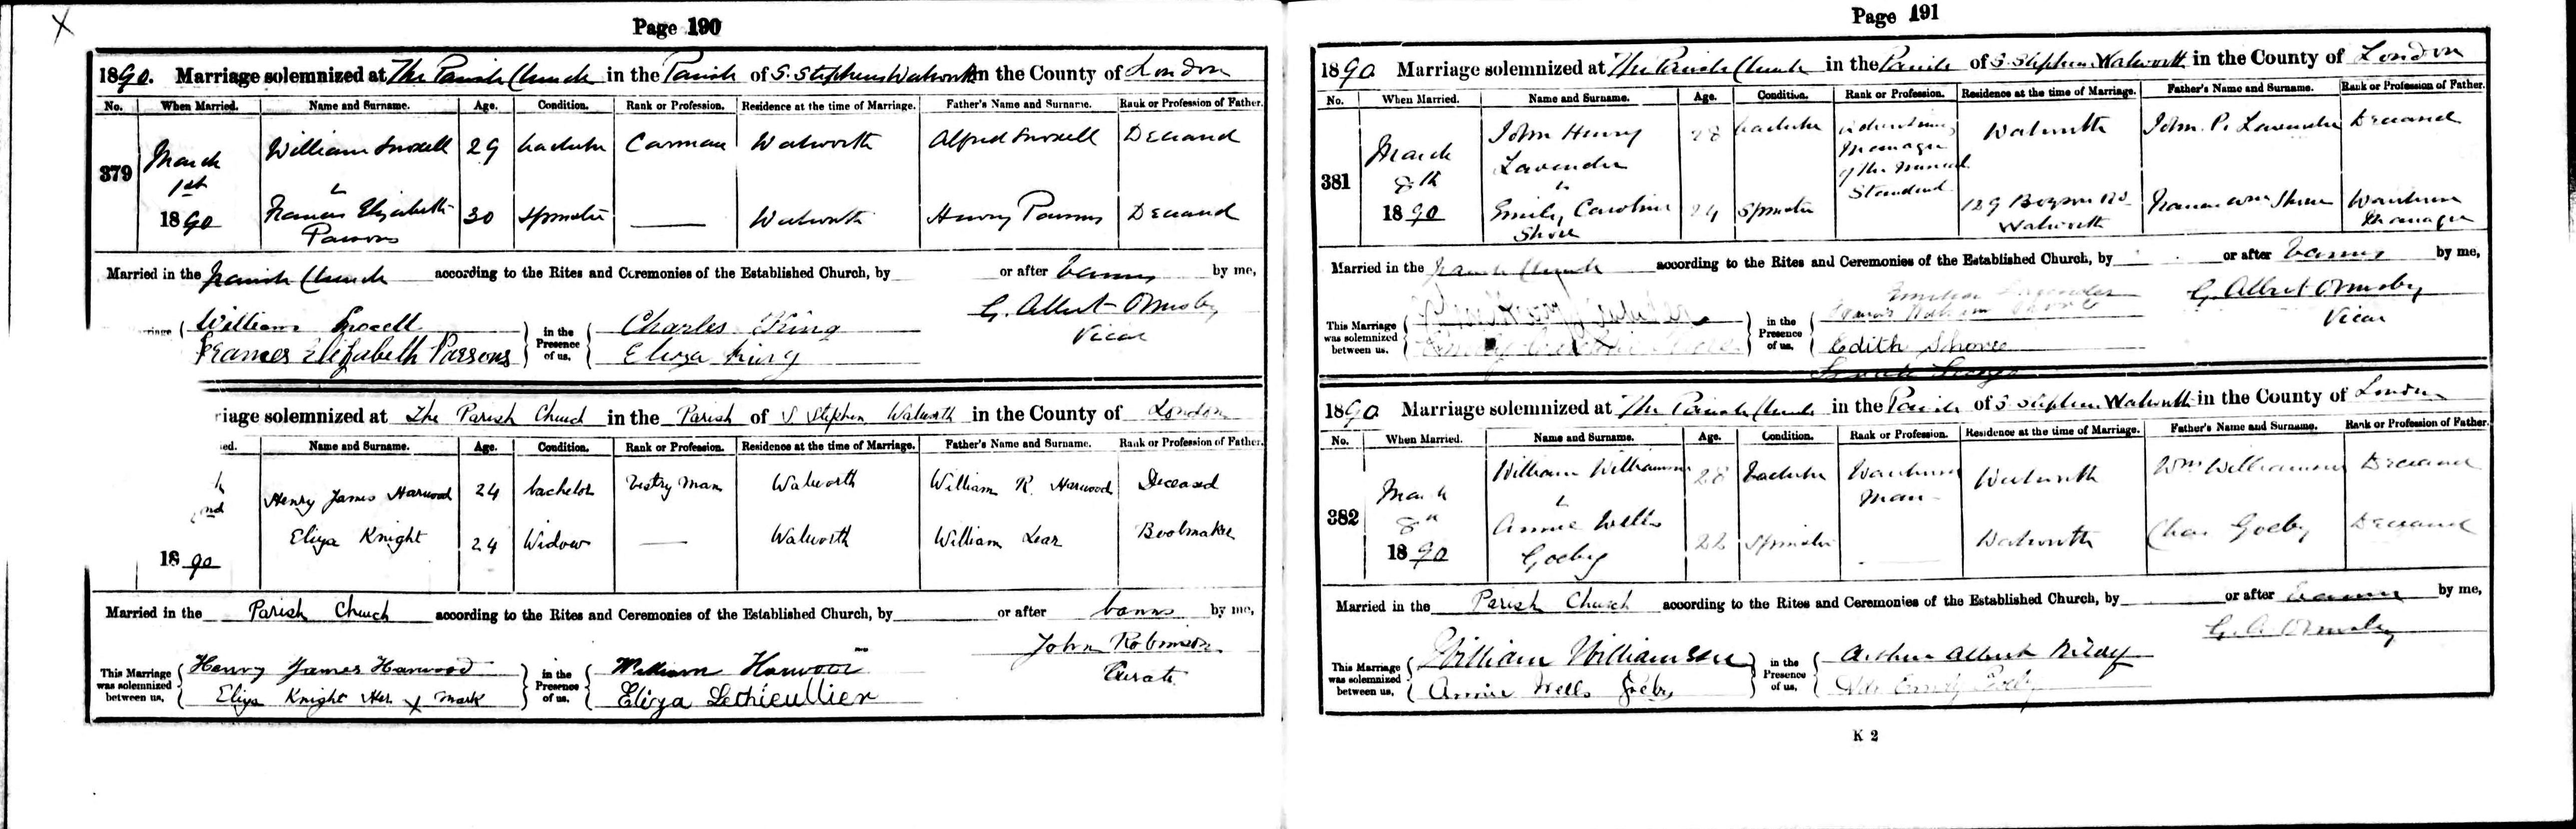 Page 190
1890. Marriage solemnized at The Parish Church in the Parish of S. Stephens Walworth in the County of London
No. When Married. Name and Surname. Age. Condition. Rank or Profession. Residence at the time of Marriage. Father's Name and Surname. Rank or Profession of Father.
379 March 1st 1890
William Snoxell 29 bachelor Carman Walworth Alfred Snoxell Deceased
Frances Elizabeth Parsons 30 Spinster — Walworth Henry Parsons Deceased
Married in the Parish Church according to the Rites and Ceremonies of the Established Church, by or after banns by me,
G. Albert Ormsby
Vicar
William Snoxell
Frances Elizabeth Parsons
in the Presence of us,
Charles King
Eliza King
riage solemnized at The Parish Church in the Parish of S. Stephen Walworth in the County of London
ed. Name and Surname. Age. Condition. Rank or Profession. Residence at the time of Marriage. Father's Name and Surname. Rank or Profession of Father.
h
nd
1890
Henry James Harwood 24 bachelor Vestry Man Walworth William R. Harwood Deceased
Eliza Knight 24 Widow — Walworth William Lear Bootmaker
Married in the Parish Church according to the Rites and Ceremonies of the Established Church, by or after banns by me,
John Robinson
Curate
This Marriage was solemnized between us,
Henry James Harwood
Eliza Knight Her x mark
in the Presence of us,
William Harwood
Eliza Lethieullier
Page 191
1890 Marriage solemnized at The Parish Church in the Parish of S. Stephen Walworth in the County of London
No. When Married. Name and Surname. Age. Condition. Rank or Profession. Residence at the time of Marriage. Father's Name and Surname. Rank or Profession of Father.
381 March 8th 1890
John Henry Lavender 28 bachelor Manager of the Standard Walworth John P. Lavender Deceased
Emily Caroline Shove 24 Spinster 129 Boyson Rd Walworth Francis Wm Shove Manager
Married in the Parish Church according to the Rites and Ceremonies of the Established Church, by or after banns by me,
G. Albert Ormsby
Vicar
This Marriage was solemnized between us,
in the Presence of us,
Edith Shove
1890 Marriage solemnized at The Parish Church in the Parish of S Stephen Walworth in the County of London
No. When Married. Name and Surname. Age. Condition. Rank or Profession. Residence at the time of Marriage. Father's Name and Surname. Rank or Profession of Father.
382 March 8th 1890
William Williamson 28 bachelor Man Walworth Wm Williamson Deceased
Annie Wells Goeby 22 Spinster Walworth Chas Goeby Deceased
Married in the Parish Church according to the Rites and Ceremonies of the Established Church, by or after banns by me,
G. A. Ormsby
This Marriage was solemnized between us,
William Williamson
Annie Wells Goeby
in the Presence of us,
Arthur Albert
K 2